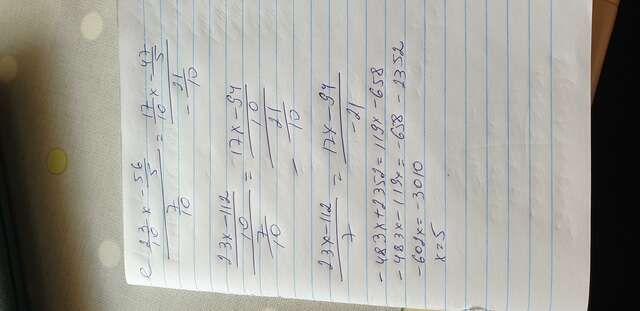 e 23/10 x - 56/5 / 7/10 = 17/10 x - 47/5 / - 21/10
23x-112/10 / 7/10 = 17x-94/10 / - 21/10
23x-112/7 = 17x-94/-21
-483x+2352=119x-658
-483x-119x=-658-2352
-602x=-3010
x=5